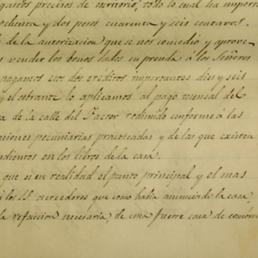 gastos precisos de escritorio, todo lo cual ha importa
ochenta y dos pesos cuarenta y seis centavos.
de la autorizacion que se nos concedió, y aprove
vender los bonos dados en prenda á los Señores
pagamos sus dos creditos importantes diez y seis
y el sobrante lo aplicamos al pago mensual del
a de la calle del Factor redimido conforme a las
ciones pecuniarias practicadas y de las que existen
pendientes en los libros de la casa.
que si en realidad el punto principal y el mas
á los SS. acreedores que como habia anunciado la casa
la refaccion necesaria, de una fuerte casa de comercio